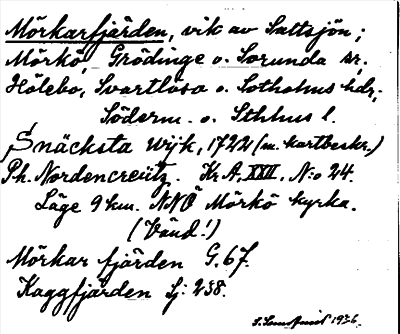 Mörkarfjärden, vik av Saltsjön;
Mörkö, Grödinge o. Sorunda sr,
Hölebo, Svartlösa o. Sotholms hdr,
Söderm. o. Sthlms l.
Snäcksta wijk, 1722 (m. kartbeskr.)
Ph. Nordencreütz. Kr. A. XXII. N:o 24.
Läge 9 km. NNÖ Mörkö kyrka.
(Vänd!)
Mörkar fjärden G. 67.
Kaggfjärden Lj: 238.
1936.